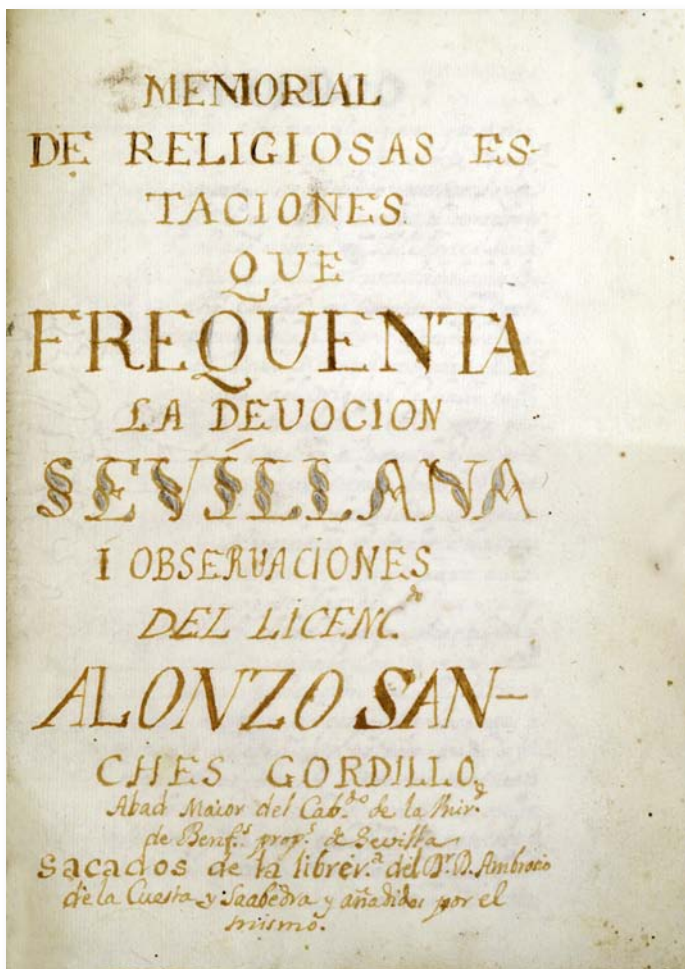 MEMORIAL
DE RELIGIOSAS ES-
TACIONES
QUE
FREQUENTA
LA DEVOCION
SEVILLANA
I OBSERVACIONES
DEL LICENC.do
ALONZO SAN-
CHES GORDILLO,
Abad Maior del Cab.do de la
de Benf.s prop.s de Sevilla
Sacados de la librer.a del Dr. D. Ambrocio
de la Cuesta y Saabedra y añadidos por el
mismo.